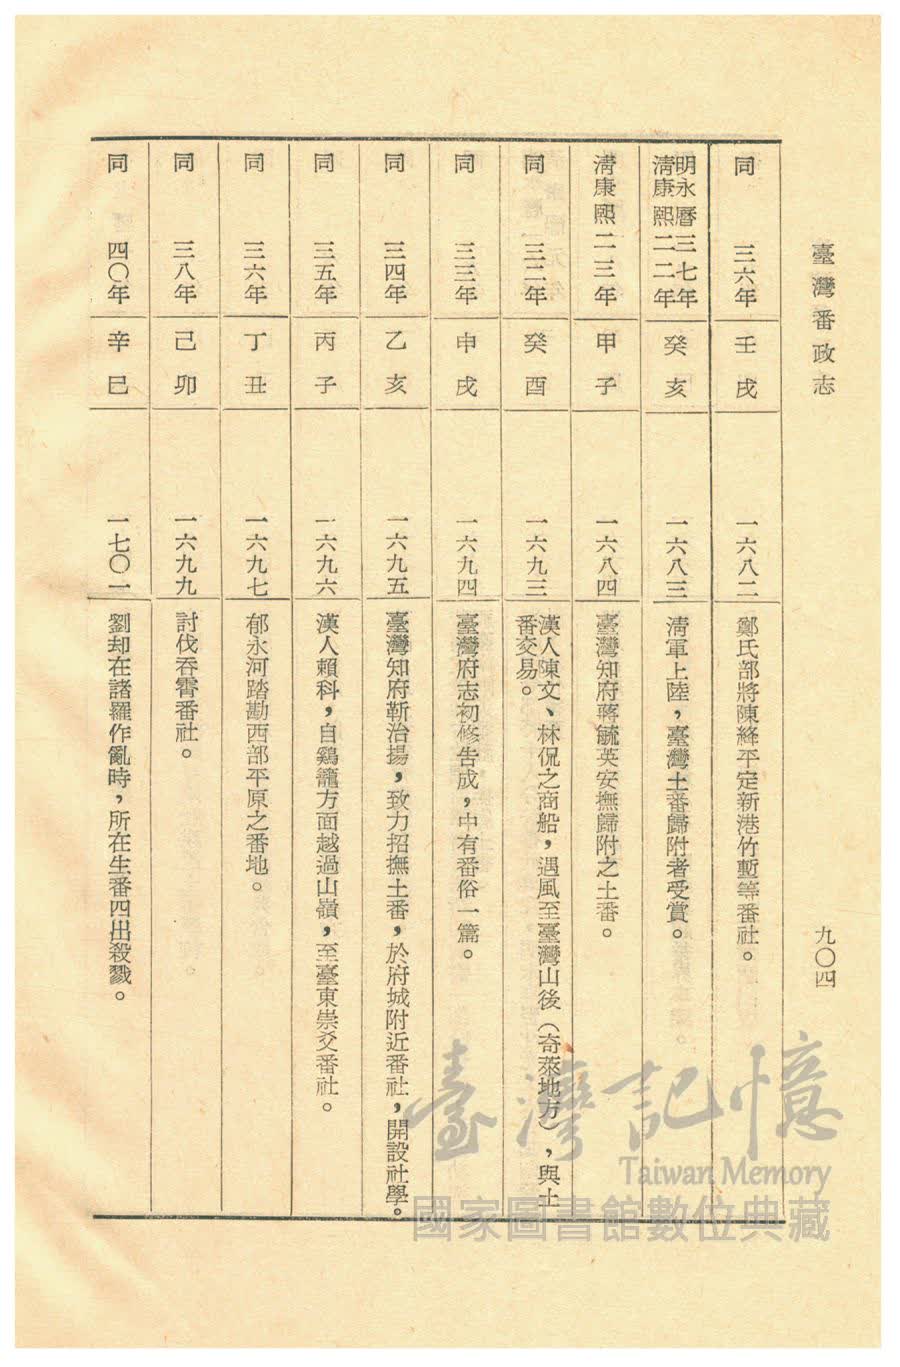 臺灣番政志
九〇四
同 三六年 壬戌 一六八二 鄭氏部將陳絳平定新港竹塹等番社。
明永曆三七年
清康熙二二年 癸亥 一六八三 清軍上陸，臺灣土番歸附者受賞。
清康熙二三年 甲子 一六八四 臺灣知府蔣毓英安撫歸附之土番。
同 三二年 癸酉 一六九三 漢人陳文、林侃之商船，遇風至臺灣山後（奇萊地方），與土
番交易。
同 三三年 申戌 一六九四 臺灣府志初修告成，中有番俗一篇。
同 三四年 乙亥 一六九五 臺灣知府靳治揚，致力招撫土番，於府城附近番社，開設社學。
同 三五年 丙子 一六九六 漢人賴科，自鷄籠方面越過山嶺，至臺東崇爻番社。
同 三六年 丁丑 一六九七 郁永河踏勘西部平原之番地。
同 三八年 己卯 一六九九 討伐吞霄番社。
同 四〇年 辛巳 一七〇一 劉却在諸羅作亂時，所在生番四出殺戮。
臺灣記憶
Taiwan Memory
國家圖書館數位典藏